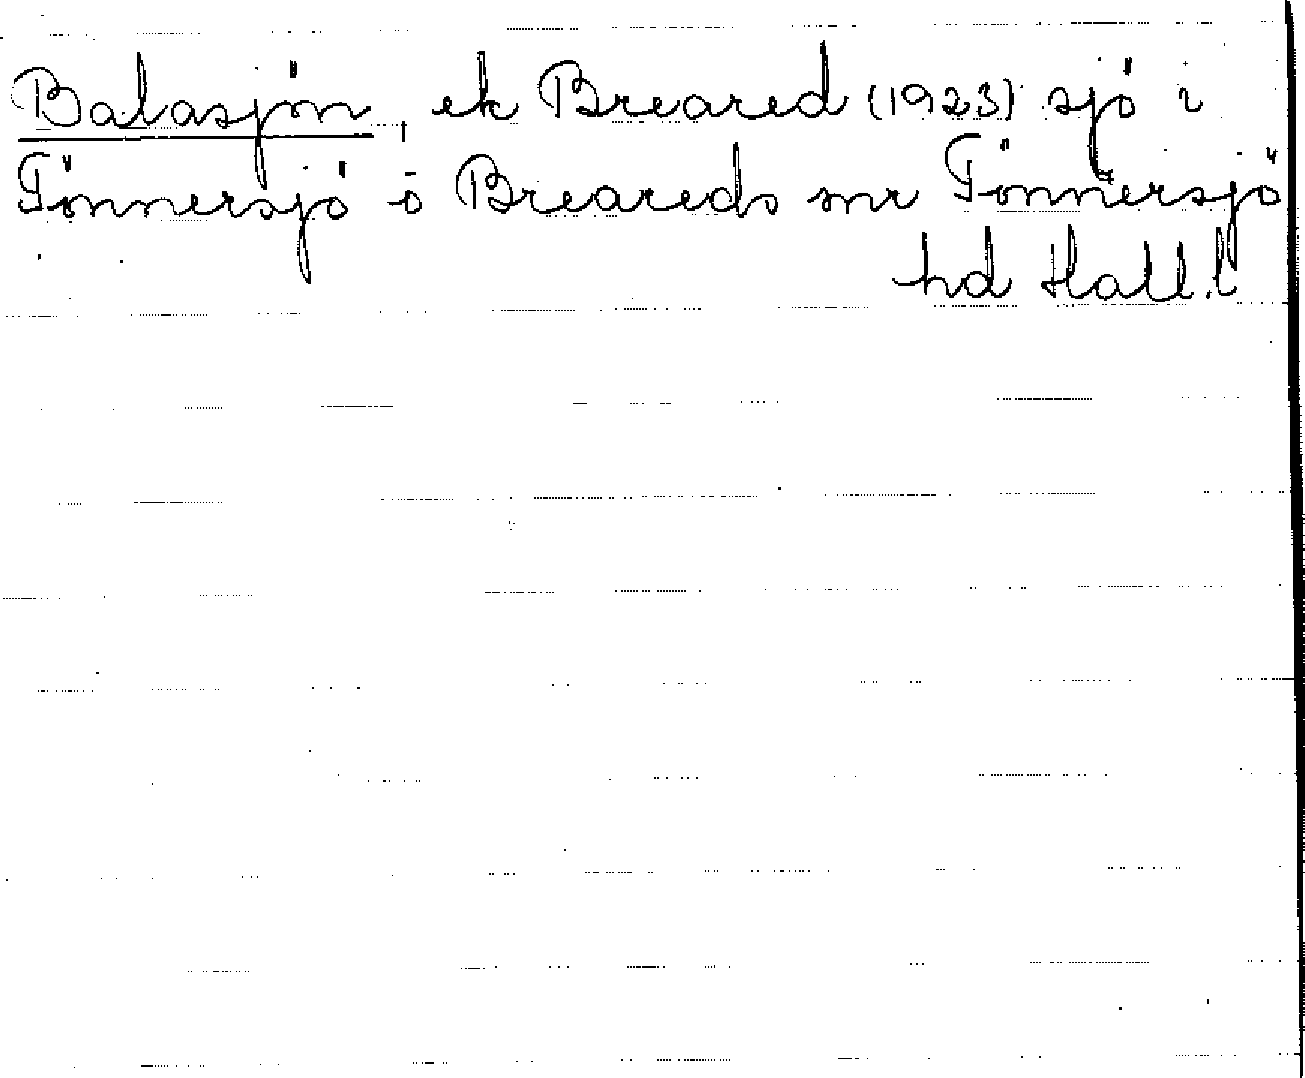 Balasjön, ek Breared (1923) sjö i
Tönnersjö o Breareds snr Tönnersjö
hd Hall.l